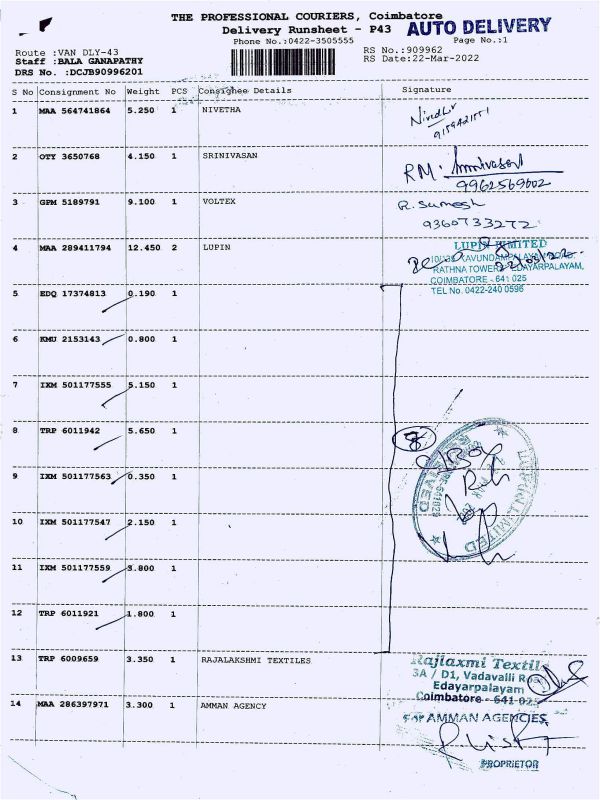 THE PROFESSIONAL COURIERS, Coimbatore
Delivery Runsheet - P43
AUTO DELIVERY
Phone No.:0422-3505555
Page No.:1
Route :VAN DLY-43
RS No.:909962
Staff :BALA GANAPATHY
RS Date:22-Mar-2022
DRS No. :DCJB90996201
S No Consignment No Weight PCS Consignee Details Signature
1 MAA 564741864 5.250 1 NIVETHA
2 OTY 3650768 4.150 1 SRINIVASAN RM. Srinivasan
9962569002
3 GPM 5189791 9.100 1 VOLTEX R. Sumesh
9360733272
4 MAA 289411794 12.450 2 LUPIN
LUPIN LIMITED
RATHNA TOWERS EDAYARPALAYAM,
COIMBATORE - 641 025
TEL No. 0422-240 0596
5 EDQ 17374813 0.190 1
6 KMU 2153143 0.800 1
7 IXM 501177555 5.150 1
8 TRP 6011942 5.650 1
8
LUPIN LIMITED
RECEIVED
9 IXM 501177563 0.350 1
10 IXM 501177547 2.150 1
11 IXM 501177559 3.800 1
12 TRP 6011921 1.800 1
13 TRP 6009659 3.350 1 RAJALAKSHMI TEXTILES
Rajlaxmi Textile
3A / D1, Vadavalli
Edayarpalayam
Coimbatore - 641 025
14 MAA 286397971 3.300 1 AMMAN AGENCY
For AMMAN AGENCIES
PROPRIETOR